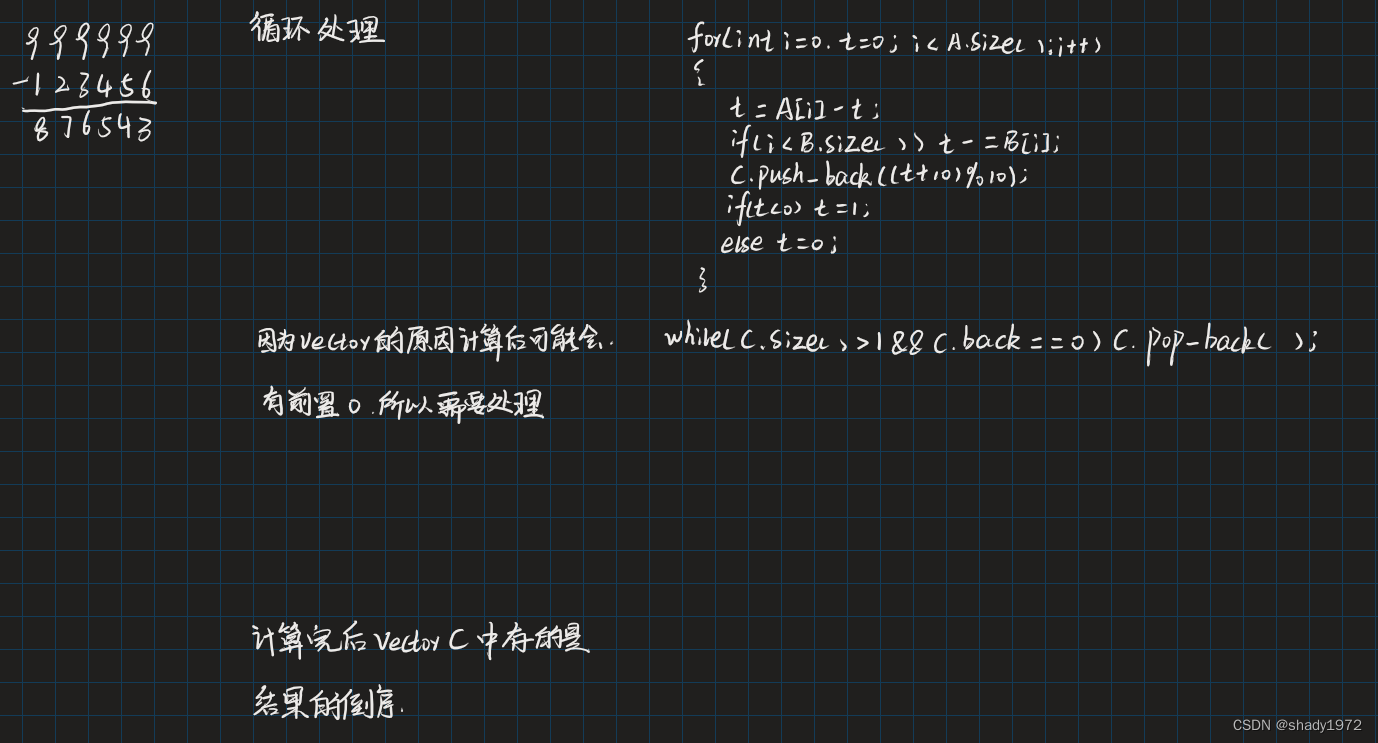 999999
-123456
876543
循环处理
for(int i=0. t=0; i<A.size( );i++)
{
t = A[i]-t;
if(i<B.size( )) t-=B[i];
C.push_back((t+10)%10);
if(t<0) t=1;
else t=0;
}
因为vector的原因计算后可能会.
有前置0.所以需要处理
while(C.size( )>1&&C.back==0) C.pop-back( );
计算完后vector C中存的是
结果的倒序.
CSDN @shady1972